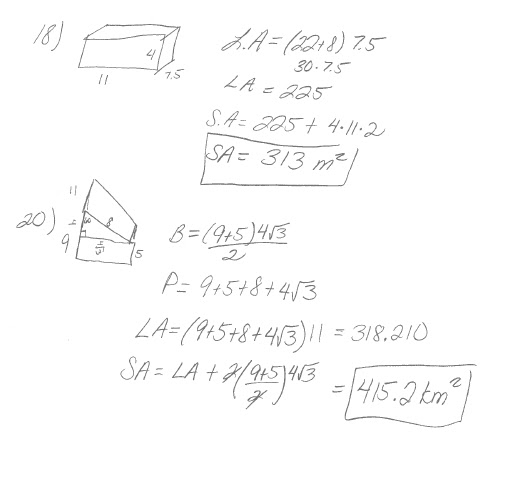 18)
4
11
7.5
L.A = (22+8) 7.5
30·7.5
LA = 225
S.A = 225 + 4·11·2
SA = 313 m²
20)
11
8
9
5
B = (9+5)4√3
2
P = 9+5+8+4√3
LA = (9+5+8+4√3)11 = 318.210
SA = LA + 2(9+5/2)4√3 = 415.2 km²